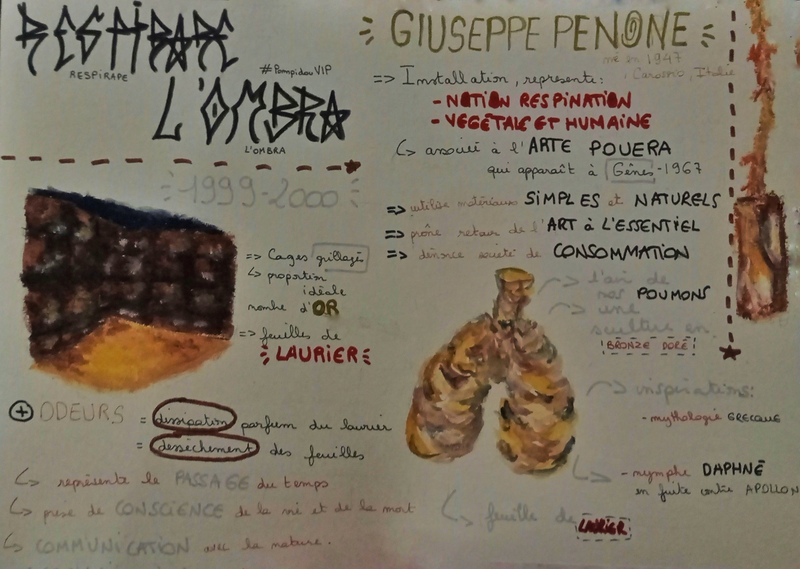 RESPIRARE
RESPIRAPE
#PompidouVIP
L'OMBRA
L'OMBRA
1999-2000
=> Cages grillagé
↳ proportion
idéale
nombre d'OR
=> feuilles de
LAURIER
+ ODEURS = dissipation parfum du laurier
= dessèchement des feuilles
↳ représente le PASSAGE du temps
↳ prise de CONSCIENCE de la vie et de la mort
↳ COMMUNICATION avec la nature.
GIUSEPPE PENONE
né en 1947
, Italie
=> Installation, représente:
- NOTION RESPINATION
- VEGETALE ET HUMAINE
↳ associé à l'ARTE POUERA
qui apparaît à Gênes-1967
=> utilise matériaux SIMPLES et NATURELS
=> prône retour de l'ART à L'ESSENTIEL
=> dénonce société de CONSOMMATION
l'air de
nos POUMONS
une
sculture en
BRONZE DORÉ
inspirations:
- mythologie GRECQUE
- nymphe DAPHNÉ
en fuite contre APOLLON
↳ feuille de LAURIER